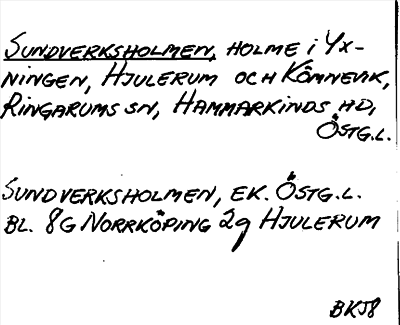 SUNDVERKSHOLMEN, HOLME I YX-
NINGEN, HJULERUM OCH KÖMNEVIK,
RINGARUMS SN, HAMMARKINDS HD,
ÖSTG.L.
SUNDVERKSHOLMEN, EK. ÖSTG.L.
BL. 8G NORRKÖPING 2g HJULERUM
BKJ8